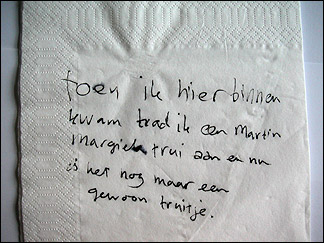 toen ik hier binnen
kwam trad ik een Martin
margiela trui aan en nu
is het nog maar een
gewoon truitje.